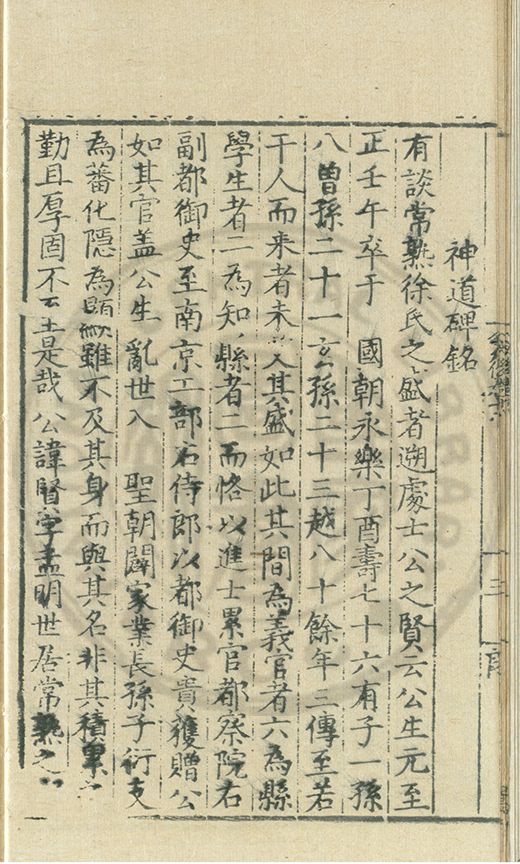 神道碑銘
有談常熟徐氏之盛者遡處士公之賢云公生元至
正壬午卒于　國朝永樂丁酉壽七十六有子一孫
八曾孫二十一玄孫二十三越八十餘年三傳至若
干人而来者未入其盛如此其間為義官者六為縣
學生者二為知縣者二而恪以進士累官都察院右
副都御史至南京工部右侍郎以都御史貴獲贈公
如其官盖公生亂世入　聖朝闢家業長孫子衍支
為蕃化隱為顯雖不及其身而與其名非其積累
勤且厚固不至是哉公諱賢字孟明世居常熟之
三